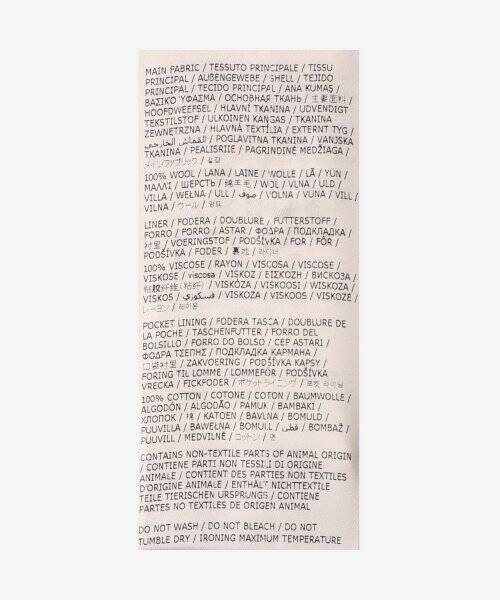 MAIN FABRIC / TESSUTO PRINCIPALE / TISSU
PRINCIPAL / AUßENGEWEBE / SHELL / TEJIDO
PRINCIPAL / TECIDO PRINCIPAL / ANA KUMAŞ /
ΒΑΣΙΚΌ ΎΦΑΣΜΑ / ОСНОВНАЯ ТКАНЬ / 主要面料 /
HOOFDWEEFSEL / HLAVNÍ TKANINA / UDVENDIGT
TEKSTILSTOF / ULKOINEN KANGAS / TKANINA
ZEWNĘTRZNA / HLAVNÁ TEXTÍLIA / EXTERNT TYG /
القماش الخارجي / POGLAVITNA TKANINA / VANJSKA
TKANINA / PEALISRIIE / PAGRINDINĖ MEDŽIAGA /
メインファブリック / 겉감
100% WOOL / LANA / LAINE / WOLLE / LÃ / YÜN /
ΜΑΛΛΊ / ШЕРСТЬ / 绵羊毛 / WOL / VLNA / ULD /
VILLA / WEŁNA / ULL / صوف / VOLNA / VUNA / VILL /
VILNA / ウール / 양모
LINER / FODERA / DOUBLURE / FUTTERSTOFF /
FORRO / FORRO / ASTAR / ΦΌΔΡΑ / ПОДКЛАДКА /
衬里 / VOERINGSTOF / PODŠÍVKA / FOR / FÔR /
PODŠÍVKA / FODER / 裏地 / 라이너
100% VISCOSE / RAYON / VISCOSA / VISCOSE /
VISKOSE / VISCOSA / VISKOZ / ΒΙΣΚΌΖΗ / ВИСКОЗА /
粘胶纤维(粘纤) / VISKÓZA / VISKOOSI / WISKOZA /
VISKOS / فسكوزي / VISKOZA / VISKOOS / VISKOZĖ /
レーヨン / 레이온
POCKET LINING / FODERA TASCA / DOUBLURE DE
LA POCHE / TASCHENFUTTER / FORRO DEL
BOLSILLO / FORRO DO BOLSO / CEP ASTARI /
ΦΌΔΡΑ ΤΣΈΠΗΣ / ПОДКЛАДКА КАРМАНА /
口袋衬里 / ZAKVOERING / PODŠÍVKA KAPSY /
FORING TIL LOMME / LOMMEFÔR / PODŠÍVKA
VRECKA / FICKFODER / ポケットライニング / 포켓 라이닝
100% COTTON / COTONE / COTON / BAUMWOLLE /
ALGODÓN / ALGODÃO / PAMUK / ΒΑΜΒΆΚΙ /
ХЛОПОК / 棉 / KATOEN / BAVLNA / BOMULD /
PUUVILLA / BAWEŁNA / BOMULL / قطن / BOMBAŽ /
PUUVILL / MEDVILNĖ / コットン / 면
CONTAINS NON-TEXTILE PARTS OF ANIMAL ORIGIN
/ CONTIENE PARTI NON TESSILI DI ORIGINE
ANIMALE / CONTIENT DES PARTIES NON TEXTILES
D'ORIGINE ANIMALE / ENTHÄLT NICHTTEXTILE
TEILE TIERISCHEN URSPRUNGS / CONTIENE
PARTES NO TEXTILES DE ORIGEN ANIMAL
DO NOT WASH / DO NOT BLEACH / DO NOT
TUMBLE DRY / IRONING MAXIMUM TEMPERATURE